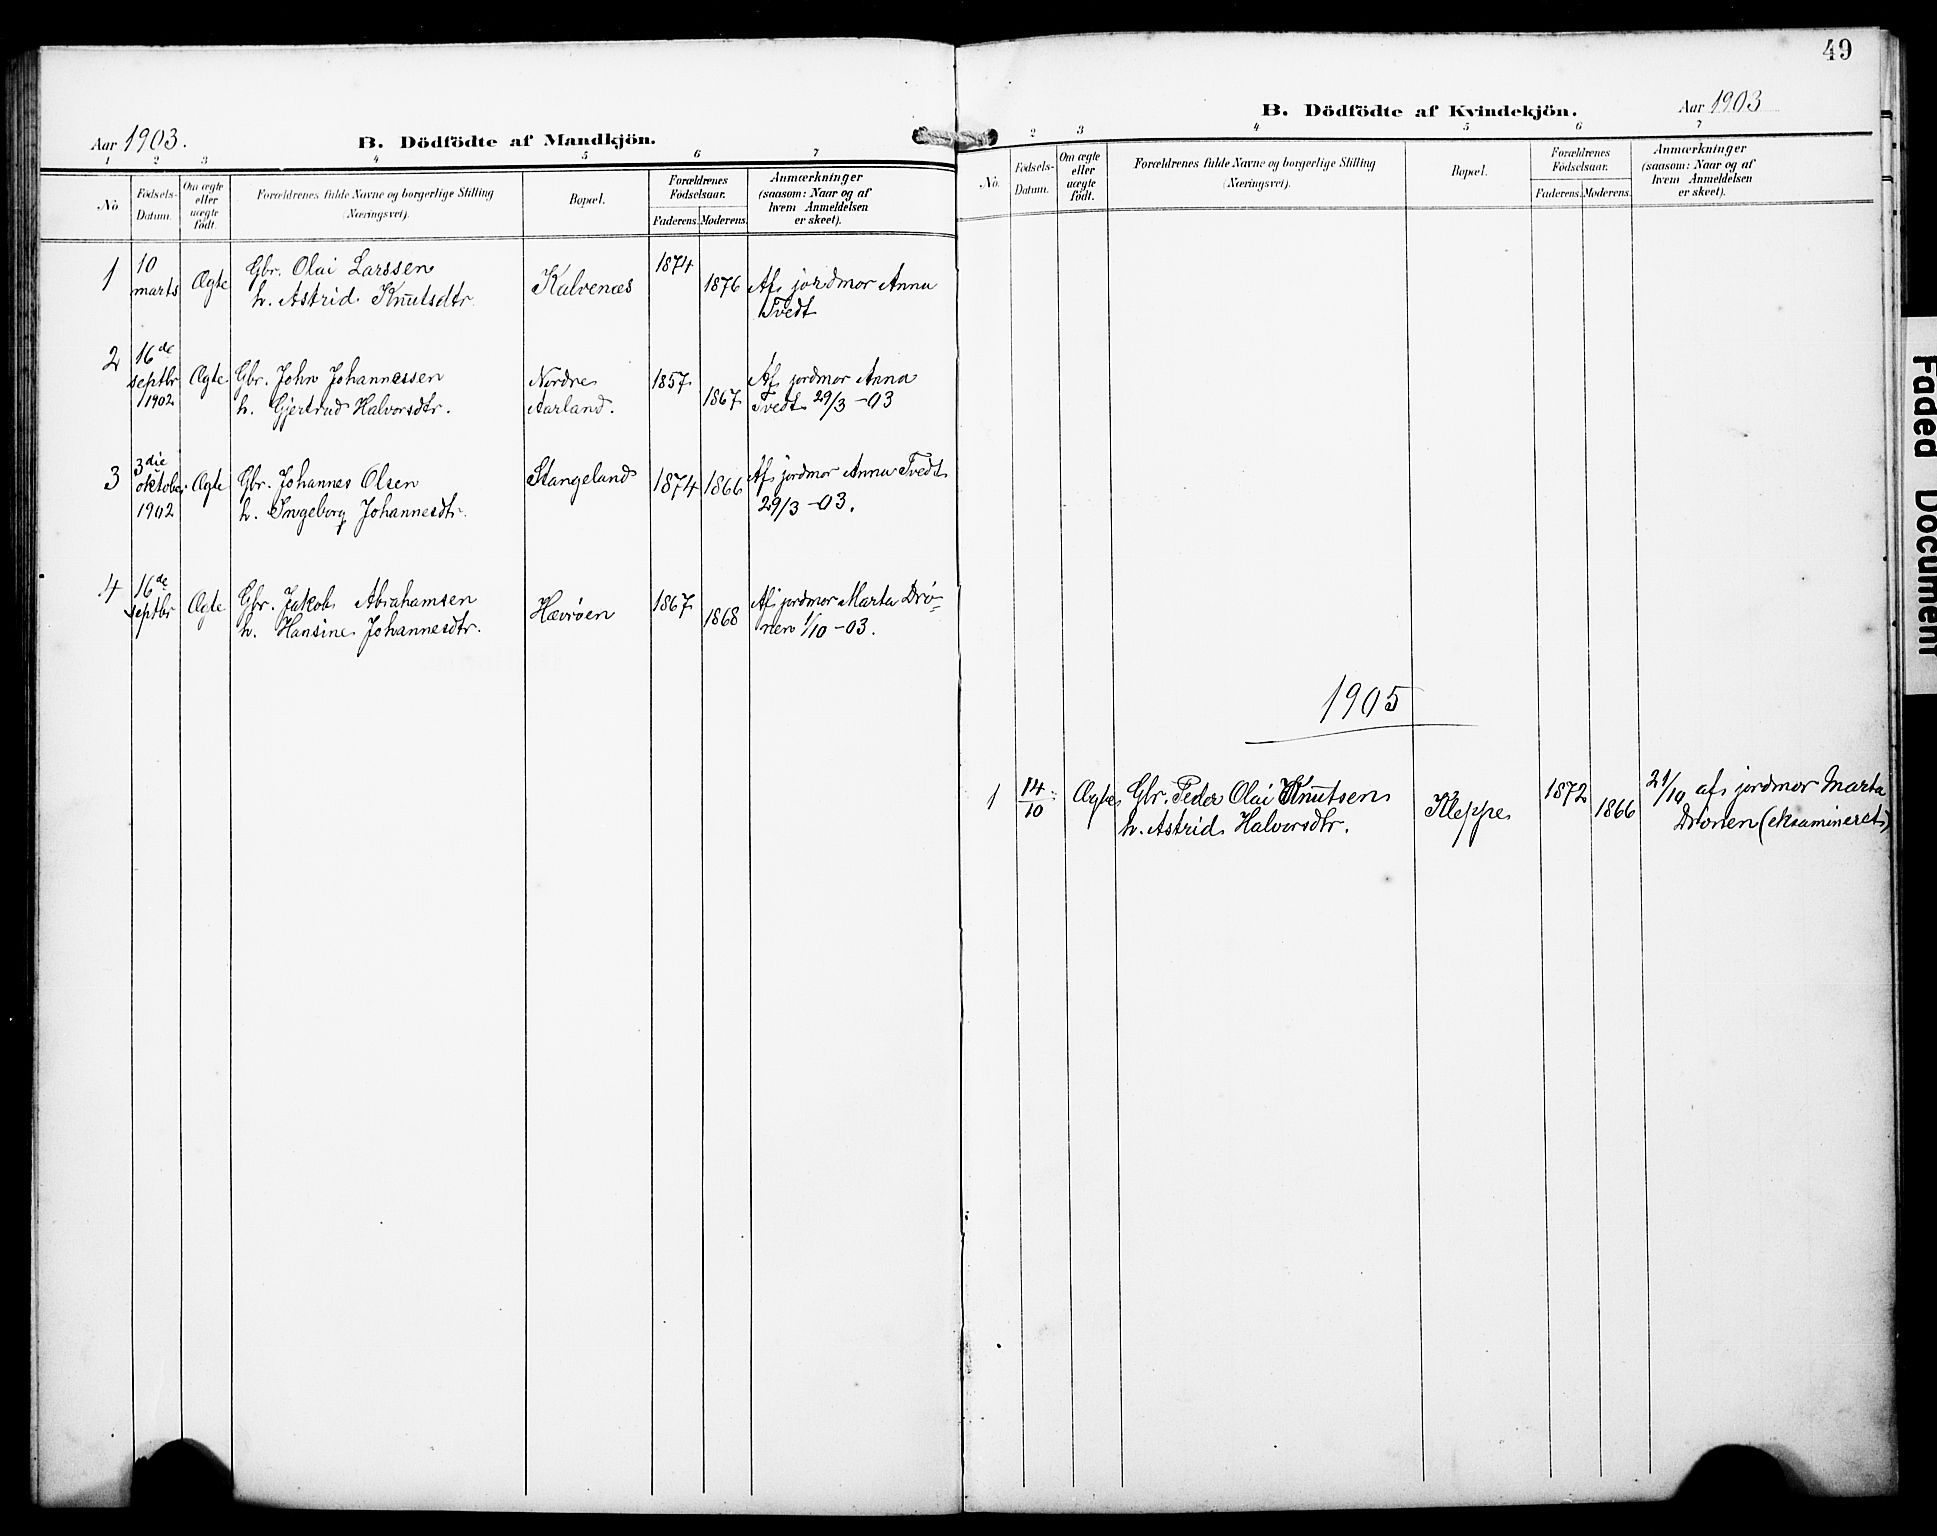 Aar 1903.
B. Dödfödte af Mandkjön.
1 2 3 4 5 6 7
No
Fødsels-
Datum.
Om ægte
eller
uægte
født.
Forældrenes fulde Navne og borgerlige Stilling
(Næringsvei).
Bopæl.
Forældrenes
Fødselsaar.
Faderens. Moderens.
Anmærkninger
(saasom: Naar og af
hvem Anmeldelsen
er skeet).
1
10
marts
Ægte
Gbr. Olai Larssen
h. Astrid Knutsdtr.
Kalvenæs
1874
1876
Af jordmor Anna
Tvedt
2
16de
septbr
1902
Ægte
Gbr. John Johannessen
h. Gjertrud Halvorsdtr.
Nordre
Aarland.
1857
1867
Af jordmor Anna
Tvedt 29/3 - 03
3
3die
oktober
1902
Ægte
Gbr. Johannes Olsen
h. Ingeborg Johannesdtr.
Stangeland
1874
1866
Af jordmor Anna Tvedt
29/3 - 03.
4
16de
septbr
Ægte
Gbr. Jakob Abrahamsen
h. Hansine Johannesdtr.
Hævrøen
1867
1868
Af jordmor Marta Drö-
nen 1/10 - 03.
49
B. Dödfödte af Kvindekjön.
Aar 1903
2 3 4 5 6 7
No.
Fødsels-
Datum.
Om ægte
eller
uægte
født.
Forældrenes fulde Navne og borgerlige Stilling
(Næringsvei).
Bopæl.
Forældrenes
Fødselsaar.
Faderens. Moderens.
Anmærkninger
(saasom: Naar og af
hvem Anmeldelsen
er skeet).
1905
1
14/10
Ægte
Gbr. Peder Olai Knutsen
h. Astrid Halvorsdtr.
Kleppe
1872
1866
21/10 af jordmor Marta
Dronen (eksamineret)
Faded Document